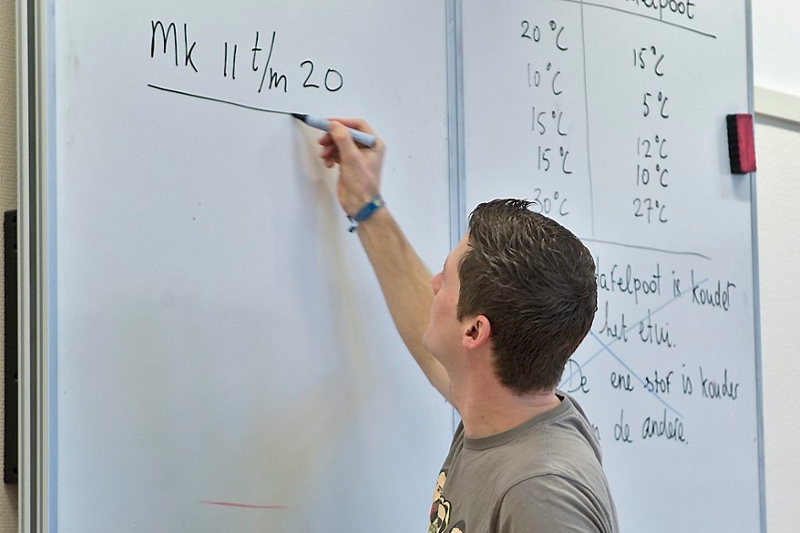 Mk 11 t/m 20
20 °C 15°C
10 °C 5 °C
15 °C 12°C
15 °C 10 °C
30 °C 27°C
is kouder
het etui.
De ene stof is kouder
de andere.